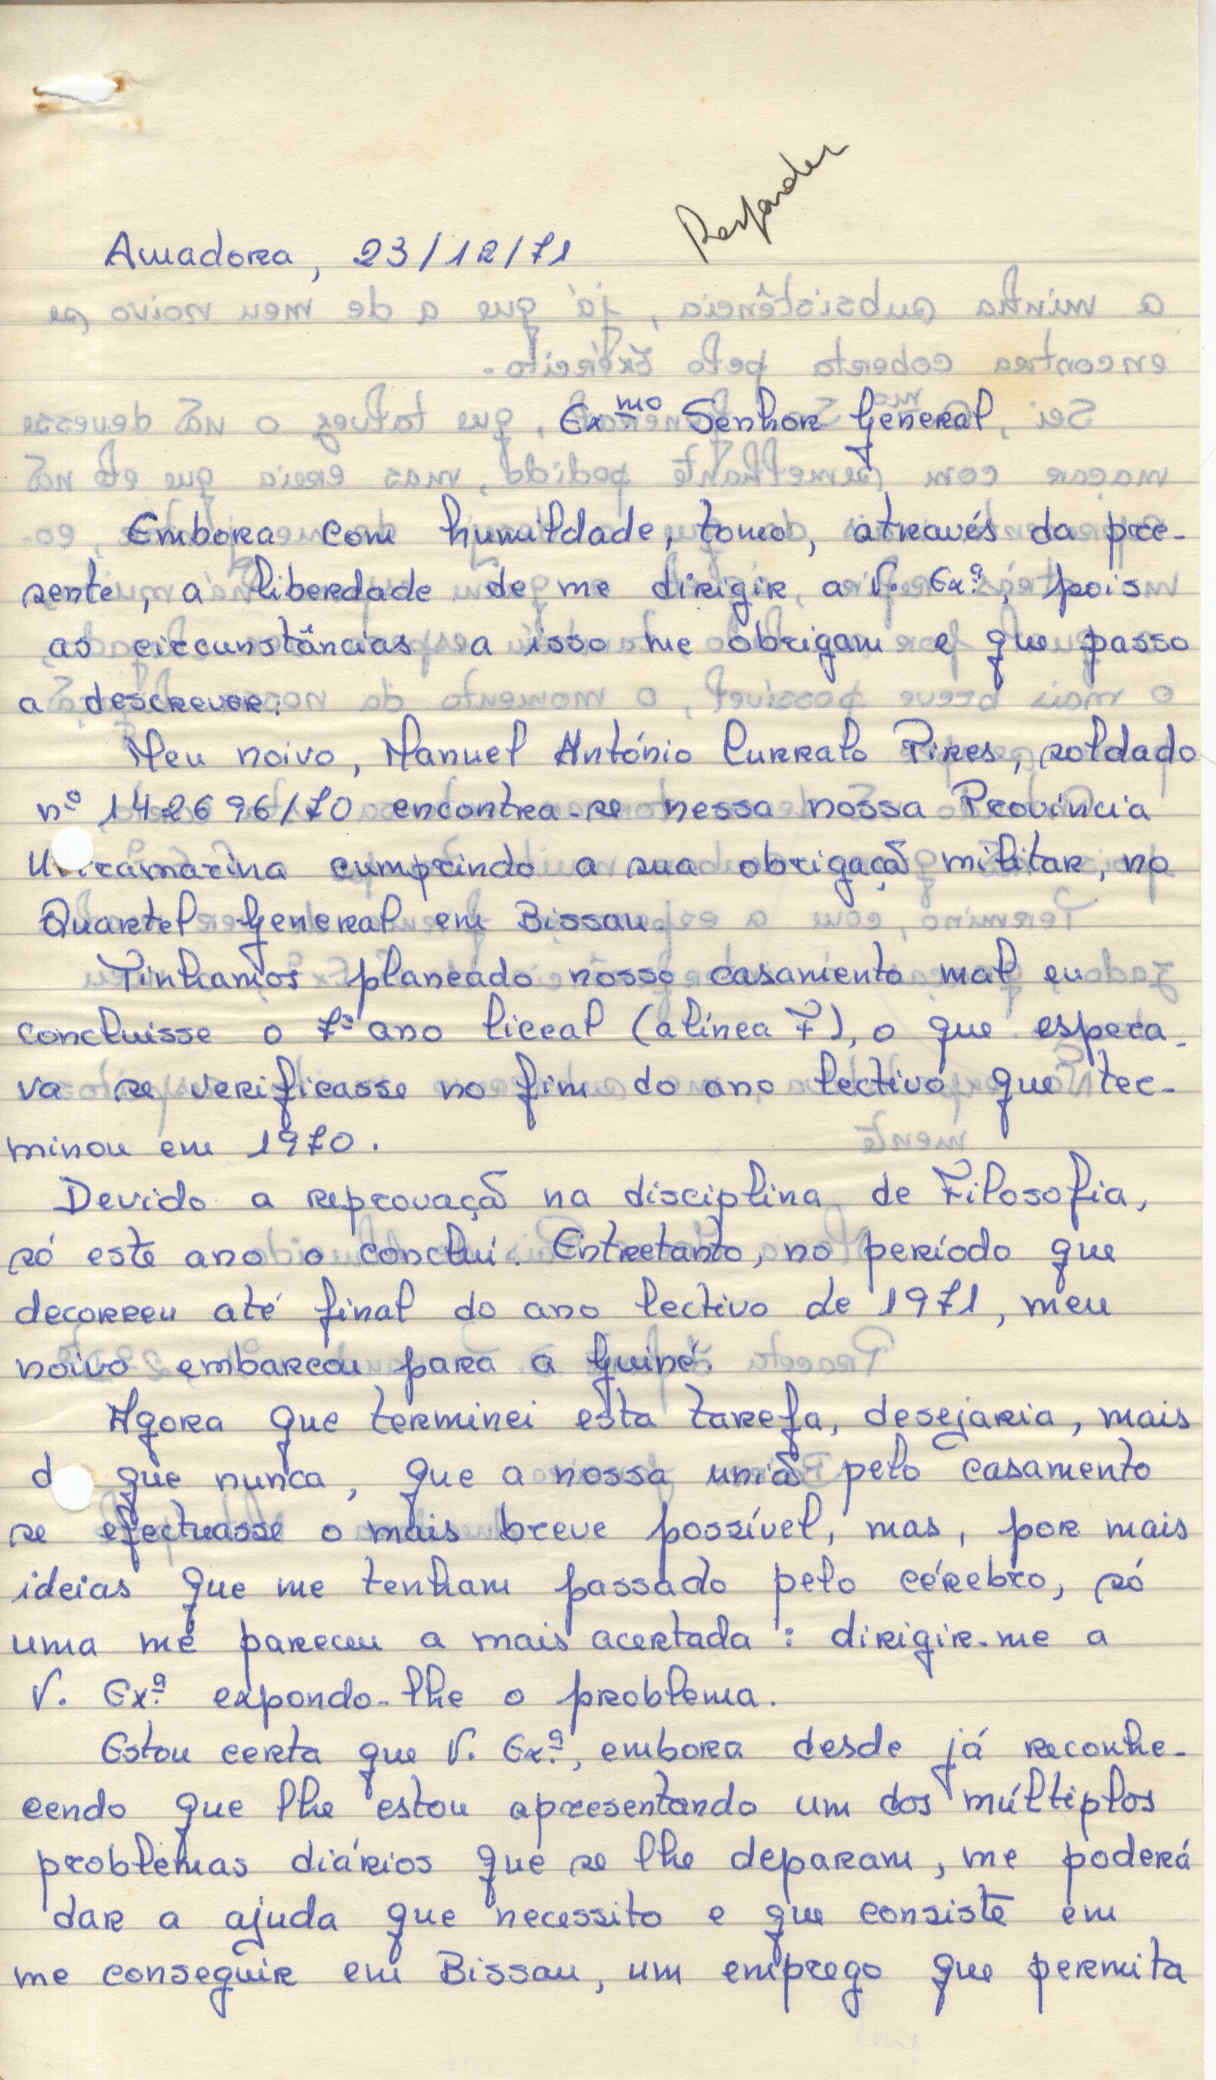 Responder
Amadora, 23/12/71
Exmo Senhor General
Embora com humildade, tomo, através da pre-
sente, a liberdade de me dirigir a V. Exª, pois
as circunstâncias a isso me obrigam e que passo
a descrever.
Meu noivo, Manuel António Curralo Pires, soldado
nº 142696/70 encontra-se nessa nossa Província
Ultramarina cumprindo a sua obrigação militar, no
Quartel General em Bissau
Tinhamos planeado nosso casamento mal eu
concluisse o 7º ano liceal (alínea F), o que espera-
va se verificasse no fim do ano lectivo que ter-
minou em 1970.
Devido a reprovação na disciplina de Filosofia,
só este ano o conclui. Entretanto, no período que
decorreu até final do ano lectivo de 1971, meu
noivo embarcou para a Guiné.
Agora que terminei esta tarefa, desejaria, mais
do que nunca, que a nossa união pelo casamento
se efectuasse o mais breve possível, mas, por mais
ideias que me tenham passado pelo cérebro, só
uma me pareceu a mais acertada: dirigir-me a
V. Exª expondo-lhe o problema.
Estou certa que V. Exª, embora desde já reconhe-
cendo que lhe estou apresentando um dos múltiplos
problemas diários que se lhe deparam, me poderá
dar a ajuda que necessito e que consiste em
me conseguir em Bissau, um emprego que permita